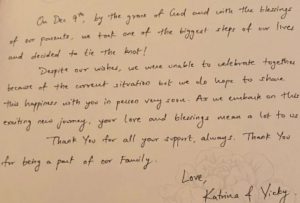 On Dec 9th, by the grace of God and with the blessings
of our parents, we took one of the biggest steps of our lives
and decided to tie the knot!
Despite our wishes, we were unable to celebrate together
because of the current situation but we do hope to share
this happiness with you in person very soon. As we embark on this
exciting new journey, your love and blessings mean a lot to us
Thank You for all your support, always. Thank You
for being a part of our Family.
Love,
Katrina & Vicky.